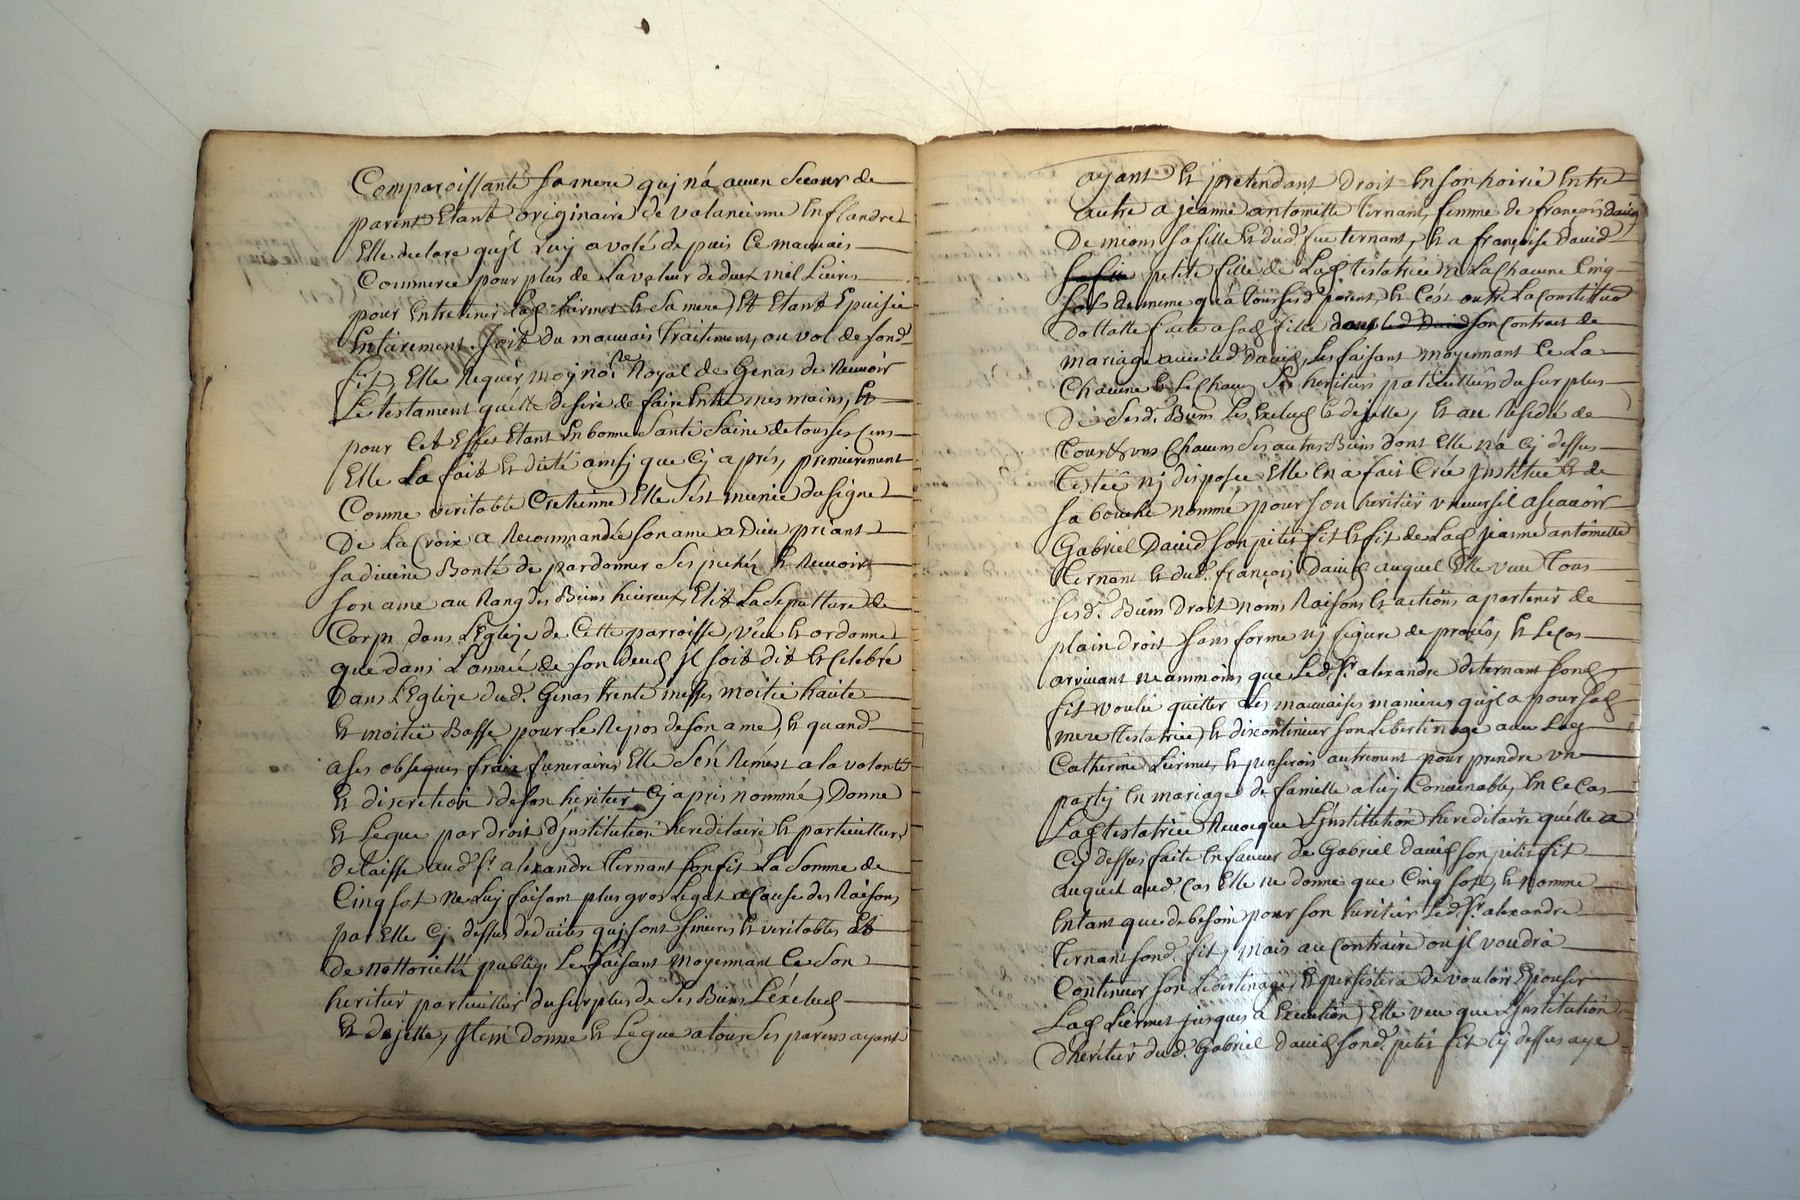 Comparoissante sa mere quj n'a aucun secour de
parent Etant originaire de valancienne en flandre
Elle declare qu'jl Luy a volé depuis Ce mauvais
Commerce pour plus de La valeur de deux mil Livres
pour Entretenir Lad Liermet & sa mere, Et Etant Epuisée
Entairement. soit du mauvais traitement, ou vol de sond.
fit, Elle Requier, moy nore Royal de Genas de Recevoir
Le testament qu'elle desire de faire Entre mes mains, &
pour Cet Effet Etant En bonne santé saine de tous ses sens
Elle La fait & dicté ainsj que Cj aprés, premierement
Comme veritable Cretienne Elle s'est munie du signe
De La Croix a Recommandée son ame a Dieu priant
sa divine Bonté de pardonner ses pechéz & Recevoir
son ame au Rang des Biens heureux, Elit La sepulture de
Corp dans L'Eglize de Cette parroisse, veut & ordonne
que dans L'année de son deced jl soit dit & Celebré
Dans L'Eglize dud. Genas trente messes moitie haute
& moitié Basse pour Le Repos de son ame, & quand
a ses obseques frais funeraires Elle s'en Remest a la volonté
& discretion de son heritier Cj apres nommé, Donne
& Legue par droit d'jnstitution hereditaire & particulier
delaisse aud sr. alexandre Ternant son fit La somme de
Cinq sot ne Luj faisant plus gros Legat a Cause des Raisons
par Elle Cj dessus deduites quj sont sinceres & veritables Et
de nottorieté publiq. Le faisant moyennant Ce son
heritier particullier du surplus de ses Biens L'exclud
& dejette, Jtem donne & Légue a tous ses parens ayant
ayant & pretendant Droit En son hoirie Entre
autre a jeanne antoinette Ternant, femme de françois david
De mions sa fille & dud. feu ternant, & a françoise david
petite fille de Lad testatrice a La Chacune Cinq
sols de meme qu'a tous sesd. parent, & C'est outre La Constituon
Dottalle faite a sad fille son Contract de
mariage avec led. David, Les faisant moyennant Ce La
Chacune & Le Chacun ses heritiers particulliers du surplus
De sesd. Biens Les Exclud & dejette, & au Residu de
Tous & uns Chacuns ses autres Biens dont Elle n'a Cj dessus
Testée nj disposée Elle En a fait Crée jnstitué & de
sa bouche nommé pour son heritier universel a scavoir
Gabriel David son petit fit & fit de Lad jeanne antoinette
Ternant & dud. françois David auquel Elle veut Tous
sesd. Biens Droit noms Raisons & actions apartenir de
plain droit sans forme nj figure de procés, & Le Cas
arrivant neammoins que Led. sr. alexandre de ternant sond.
fit voulu quitter Les mauvaises manieres qu'jl a pour sad
mere Testatrice & discontinuer son Libertinage avec Lad
Catherine Liermet, & penseroit autrement pour prendre un
partij En mariage de famille a luj Convenable, En Ce Cas
Lad testatrice Revocque L'jnstitution hereditaire qu'elle a
Cj dessus faite En faveur de Gabriel david son petit fit
auquel aud. Cas Elle ne donne que Cinq sols, & nomme
En tant que de besoin pour son heritier Led. sr. alexandre
Ternant sond. fit, mais au Contraire ou jl voudra
Continuer son Libertinage, & persistera de vouloir Epouser
Lad Liermet jusques a Execution, Elle veut que L'jnstitution
D'heritier dud. Gabriel david sond. petit fit Cj dessus aye